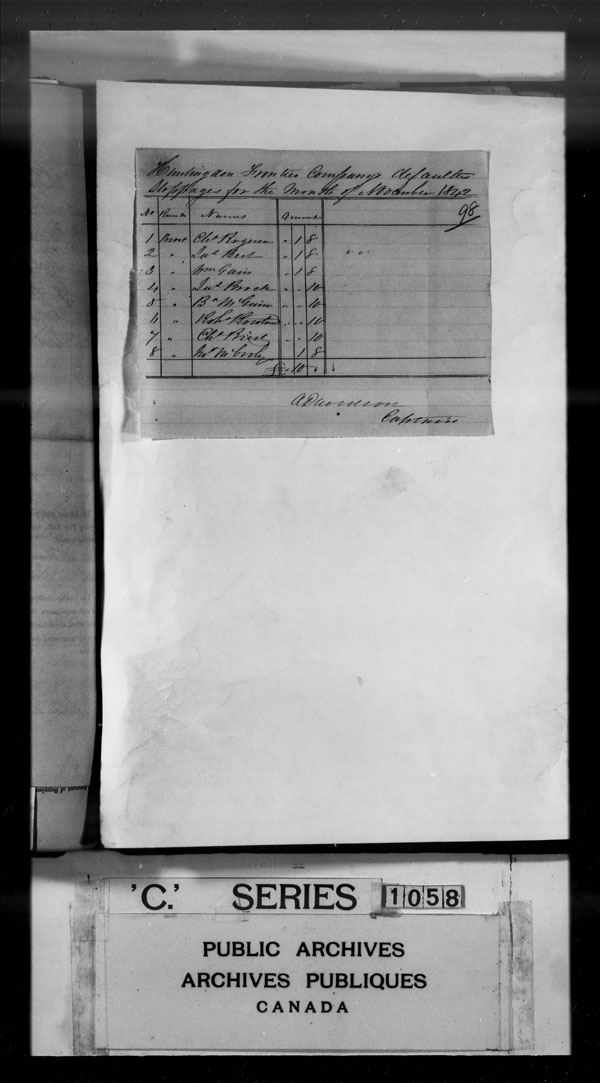 Huntingdon Frontier Company defaulters
Stoppages for the Month of November 1842
98
No Rank Names Amount
1 Privt Chs Rogerson " 1 8
2 " Jas 1 8
3 " Wm Gain " 1 8
4 " Jas Brock " " 10
5 " McGuin " " 10
6 " Robt " " 10
7 " Chs " " 10
8 " 1 8
£ " 10 "
A Davidson
Captain
'C.' SERIES 1058
PUBLIC ARCHIVES
ARCHIVES PUBLIQUES
CANADA